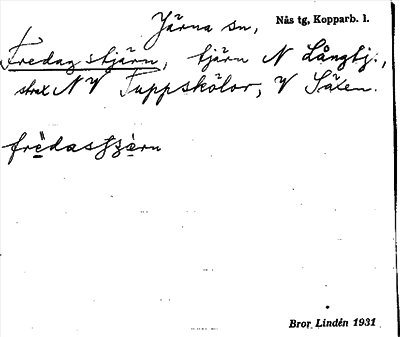 Järna sn, Nås tg, Kopparb. l.
Fredagstjärn, tjärn N Långtj:,
strax NV Tuppskölor, V Säxen.
Bror Lindén 1931